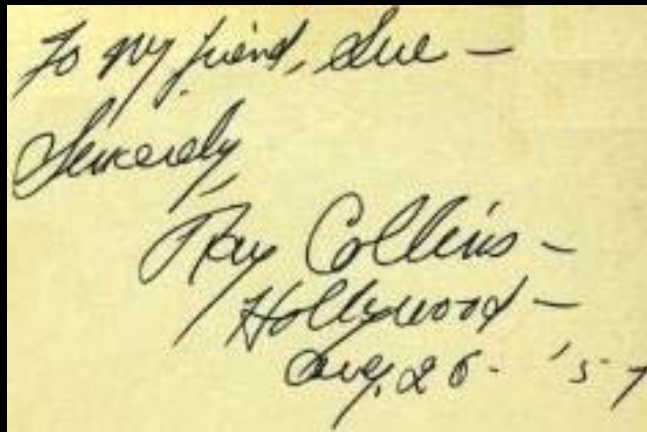 To my friend, Sue —
Sincerely,
Ray Collins —
Hollywood —
Aug. 26 - '57